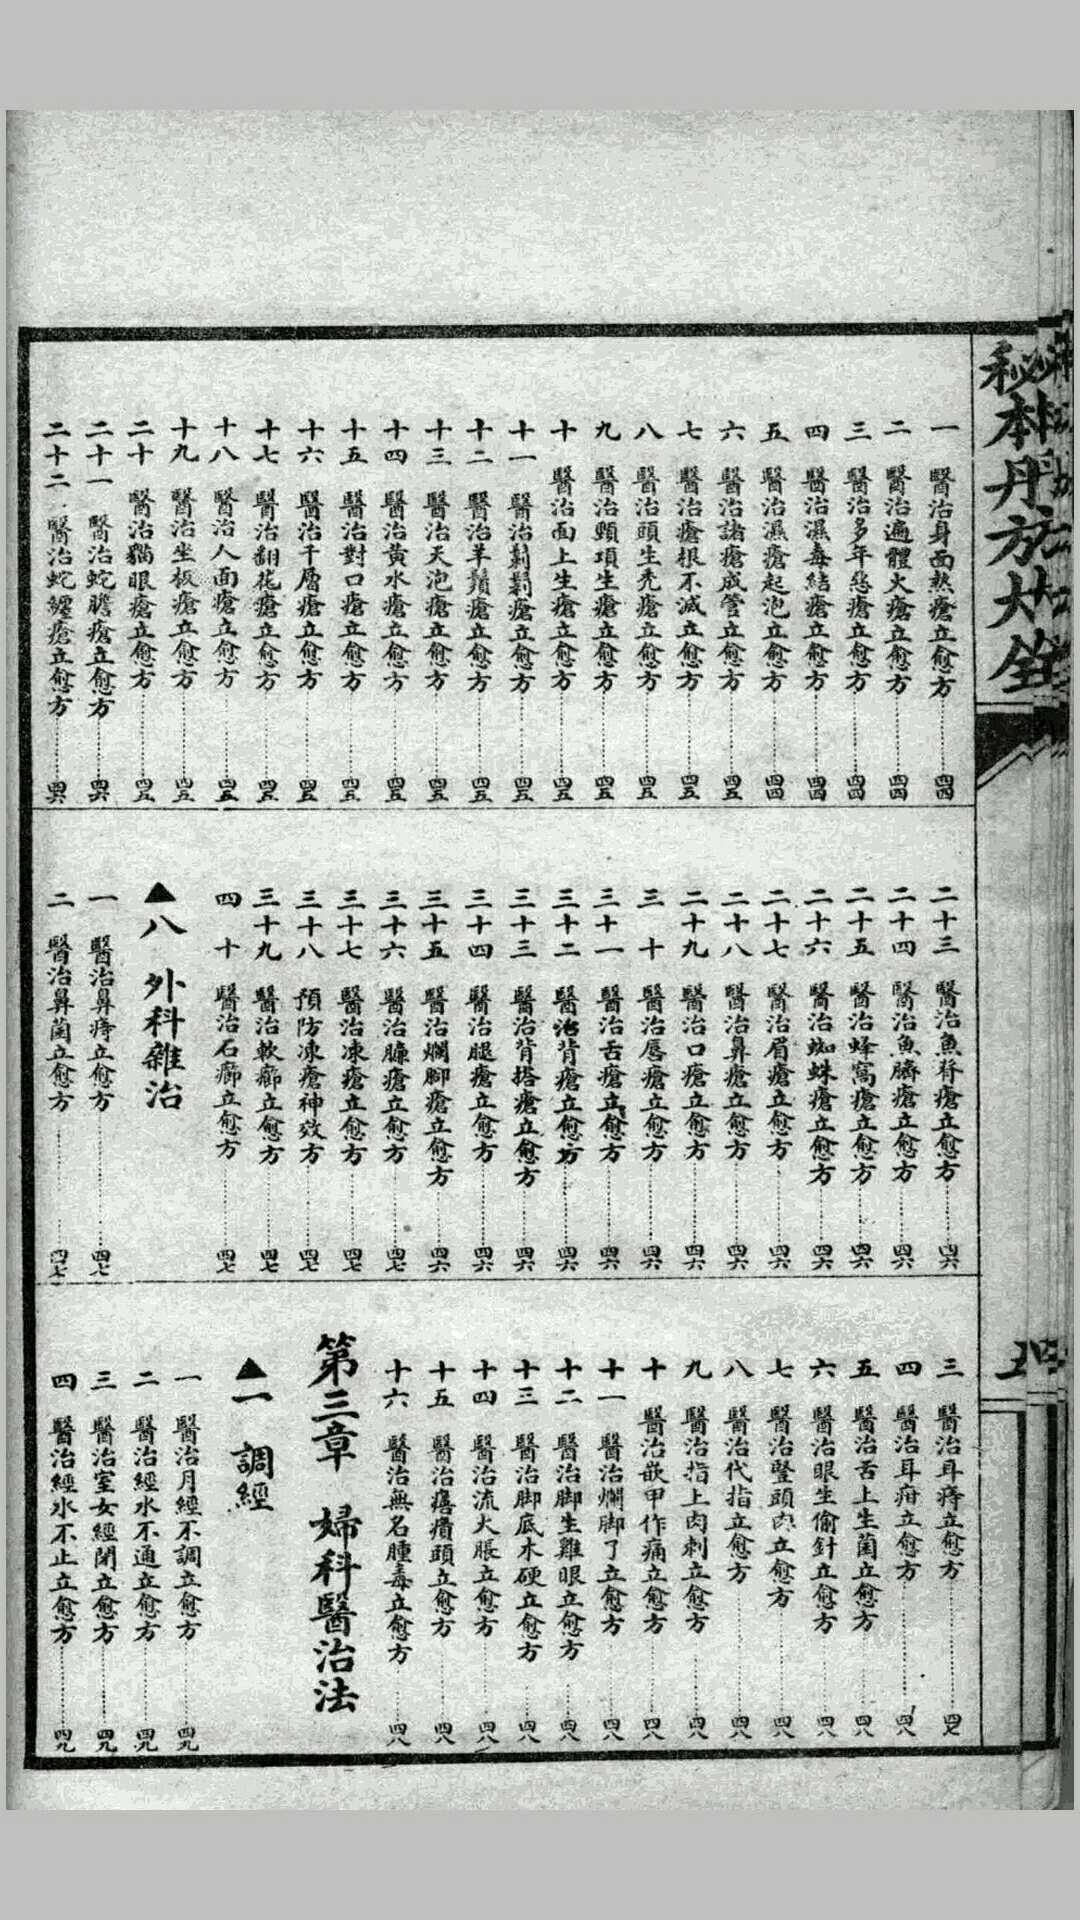 秘本丹方大全
一　醫治身面熱瘡立愈方 四四
二　醫治遍體火瘡立愈方 四四
三　醫治多年惡瘡立愈方 四四
四　醫治濕毒結瘡立愈方 四四
五　醫治濕瘡起泡立愈方 四四
六　醫治諸瘡成管立愈方 四五
七　醫治瘡根不滅立愈方 四五
八　醫治頭生禿瘡立愈方 四五
九　醫治頸項生瘡立愈方 四五
十　醫治面上生瘡立愈方 四五
十一　醫治鬎鬁瘡立愈方 四五
十二　醫治羊鬚瘡立愈方 四五
十三　醫治天泡瘡立愈方 四五
十四　醫治黃水瘡立愈方 四五
十五　醫治對口瘡立愈方 四五
十六　醫治千層瘡立愈方 四五
十七　醫治翻花瘡立愈方 四五
十八　醫治人面瘡立愈方 四五
十九　醫治坐板瘡立愈方 四五
二十　醫治貓眼瘡立愈方 四五
二十一　醫治蛇膽瘡立愈方 四六
二十二　醫治蛇纏瘡立愈方 四六
二十三　醫治魚脊瘡立愈方 四六
二十四　醫治魚臍瘡立愈方 四六
二十五　醫治蜂窩瘡立愈方 四六
二十六　醫治蜘蛛瘡立愈方 四六
二十七　醫治眉瘡立愈方 四六
二十八　醫治鼻瘡立愈方 四六
二十九　醫治口瘡立愈方 四六
三十　醫治唇瘡立愈方 四六
三十一　醫治舌瘡立愈方 四六
三十二　醫治背瘡立愈方 四六
三十三　醫治背搭瘡立愈方 四六
三十四　醫治腿瘡立愈方 四六
三十五　醫治爛腳瘡立愈方 四六
三十六　醫治臁瘡立愈方 四七
三十七　醫治凍瘡立愈方 四七
三十八　預防凍瘡神效方 四七
三十九　醫治軟癤立愈方 四七
四十　醫治石癤立愈方 四七
▲八　外科雜治
一　醫治鼻痔立愈方 四七
二　醫治鼻菌立愈方 四七
三　醫治耳痔立愈方 四七
四　醫治耳疳立愈方 四八
五　醫治舌上生菌立愈方 四八
六　醫治眼生偷針立愈方 四八
七　醫治豎頭肉立愈方 四八
八　醫治代指立愈方 四八
九　醫治指上肉刺立愈方 四八
十　醫治嵌甲作痛立愈方 四八
十一　醫治爛脚丫立愈方 四八
十二　醫治脚生雞眼立愈方 四八
十三　醫治脚底木硬立愈方 四八
十四　醫治流火脹立愈方 四八
十五　醫治瘪癀頭立愈方 四八
十六　醫治無名腫毒立愈方 四八
第三章　婦科醫治法
▲一　調經
一　醫治月經不調立愈方 四九
二　醫治經水不通立愈方 四九
三　醫治室女經閉立愈方 四九
四　醫治經水不止立愈方 四九